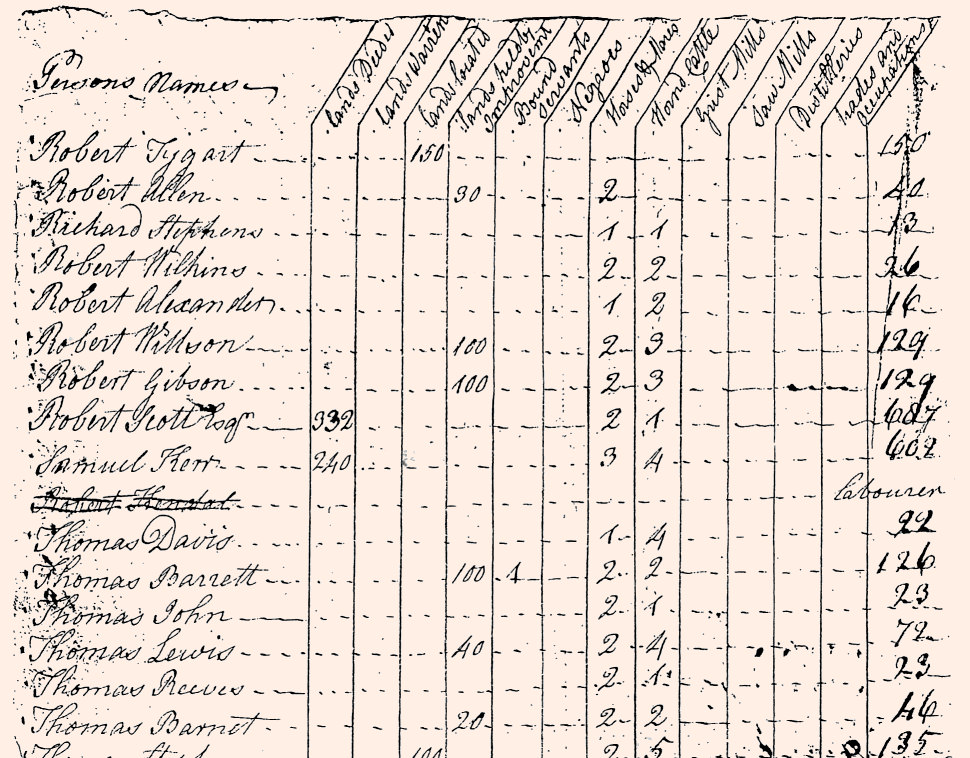 Persons Names Lands Deeded Lands Warren Lands Located Lands held by Improvement Bound Servants Negroes Horses & Mares Horned Cattle Grist Mills Saw Mills Distilleries Trades and occupations
Robert Tygart 150 150
Robert Allen 30 2 40
Richard Stephens 1 1 13
Robert Wilkins 2 2 26
Robert Alexander 1 2 16
Robert Willson 100 2 3 129
Robert Gibson 100 2 3 129
Robert Scott Esqr 332 2 1 687
Samuel Kerr 240 3 4 602
Robert Kendal labourer
Thomas Davis 1 4 22
Thomas Barrett 100 1 2 2 126
Thomas John 2 1 23
Thomas Lewis 40 2 4 72
Thomas Reeves 2 1 23
Thomas Barnet 20 2 2 46
2 5 135